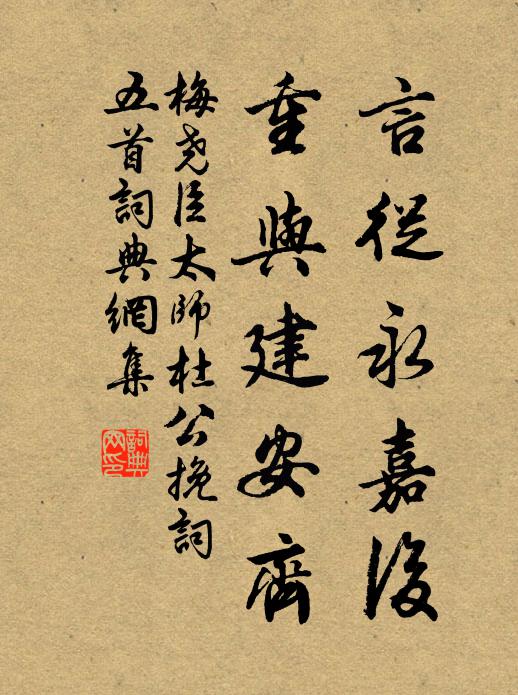 言從永嘉後
重與建安齊
梅堯臣太師杜公挽詞
五首詞典網集
詞典
网印